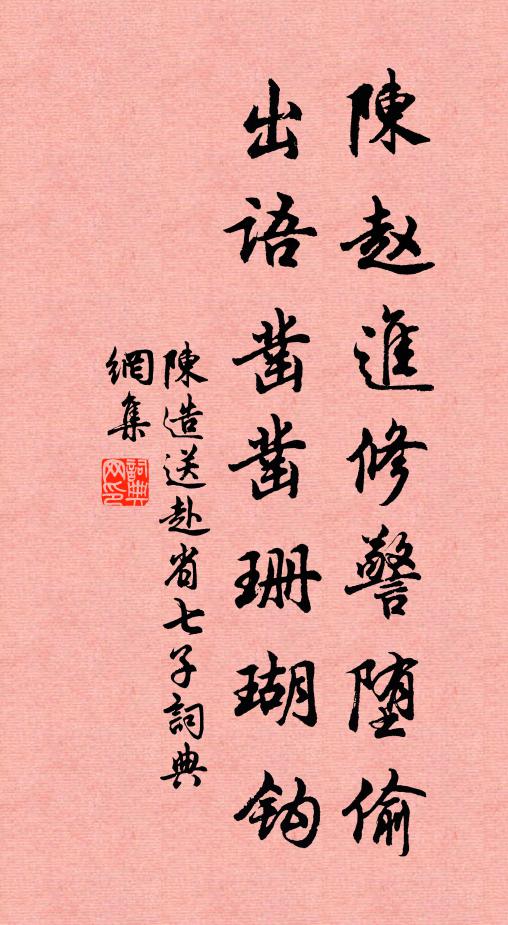 陳赵進修警堕偷
出語凿凿珊瑚钩
陳造送赴省七子詞典
網集
詞典網印